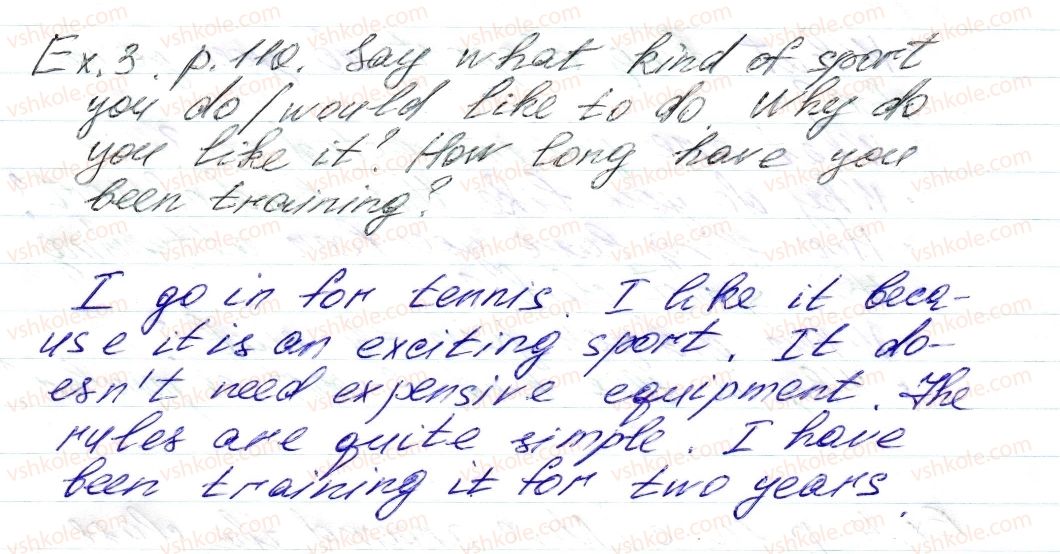 Ex. 3. p. 110. Say what kind of sport
you do / would like to do. Why do
you like it? How long have you
been training?
I go in for tennis. I like it beca-
use it is an exciting sport. It do-
esn't need expensive equipment. The
rules are quite simple. I have
been training it for two years.